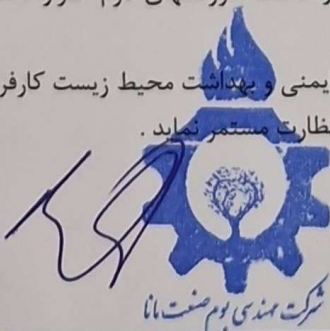 یمنی و بهداشت محیط زیست کارفر
ظارت مستمر نماید .
شرکت مهندسی بوم صنعت مانا